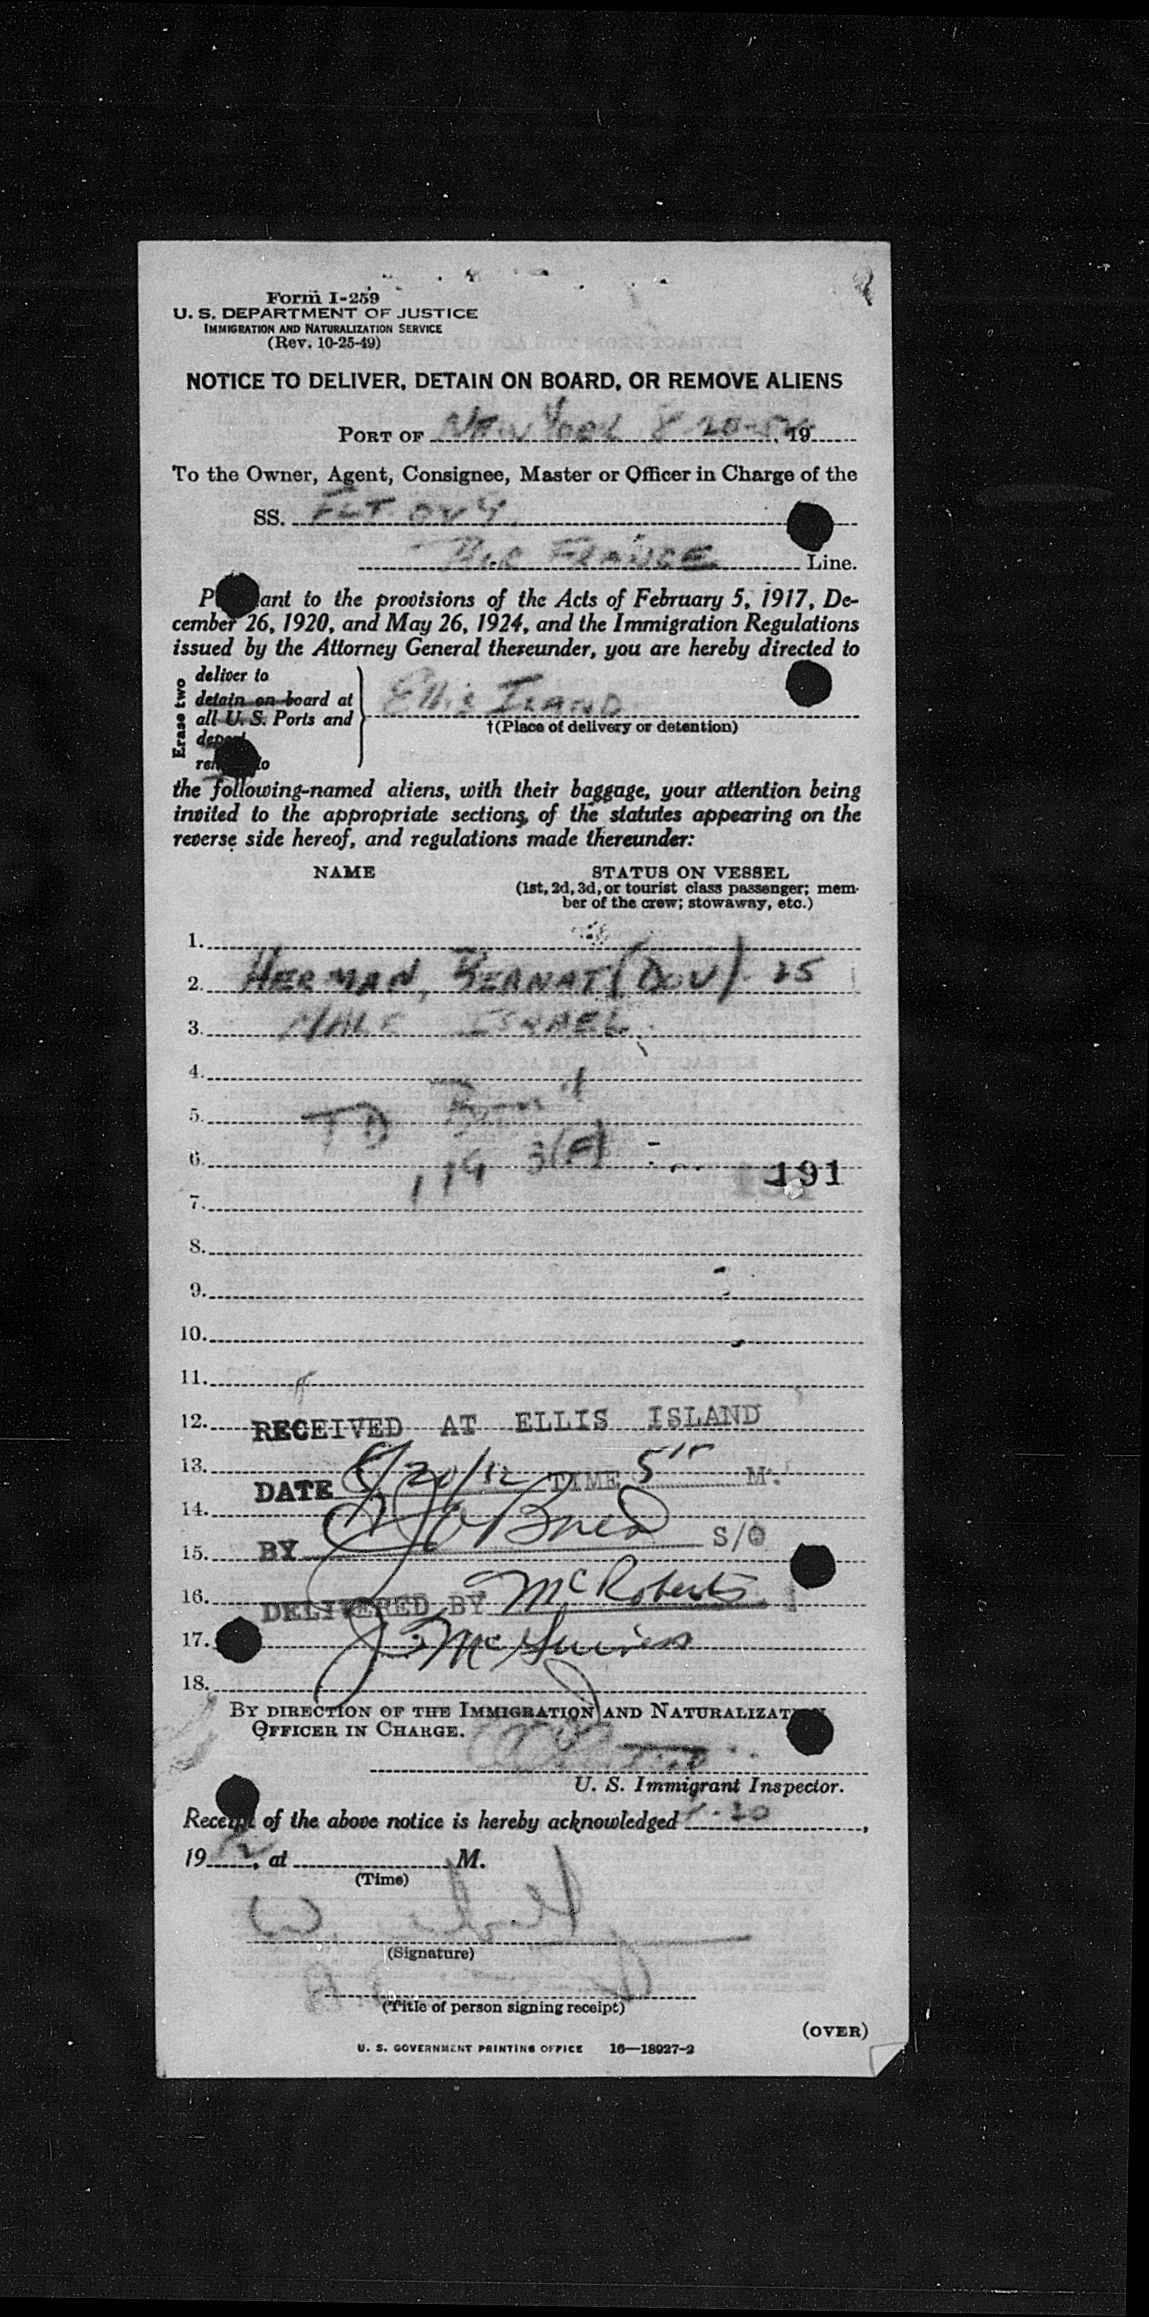 Form I-259
U. S. DEPARTMENT OF JUSTICE
IMMIGRATION AND NATURALIZATION SERVICE
(Rev. 10-25-49)
NOTICE TO DELIVER, DETAIN ON BOARD, OR REMOVE ALIENS
PORT OF NEW YORK 8-20-52, 19
To the Owner, Agent, Consignee, Master or Officer in Charge of the
SS. FLT 004
AIR FRANCE Line.
ant to the provisions of the Acts of February 5, 1917, De-
cember 26, 1920, and May 26, 1924, and the Immigration Regulations
issued by the Attorney General thereunder, you are hereby directed to
Erase two
deliver to
detain on board at
all U. S. Ports and
Ellis ISLAND
†(Place of delivery or detention)
the following-named aliens, with their baggage, your attention being
invited to the appropriate sections, of the statutes appearing on the
reverse side hereof, and regulations made thereunder:
NAME STATUS ON VESSEL
(1st, 2d, 3d, or tourist class passenger; mem-
ber of the crew; stowaway, etc.)
1.
2. HERMAN, BERNAT (DOV) 25
3. MALE ISRAEL
4.
5. TD
6. 3(F)
191
7.
8.
9.
10.
11.
12. RECEIVED AT ELLIS ISLAND
13.
DATE 8/20/52 TIME 5 M.
14.
BY S/O
15.
16. DELIVERED BY McRoberts
17. J. McGuiness
18.
BY DIRECTION OF THE IMMIGRATION AND NATURALIZATION
OFFICER IN CHARGE.
U. S. Immigrant Inspector.
Receipt of the above notice is hereby acknowledged 8-20,
1952, at M.
(Time)
(Signature)
(Title of person signing receipt)
(OVER)
U. S. GOVERNMENT PRINTING OFFICE 16—18927-2